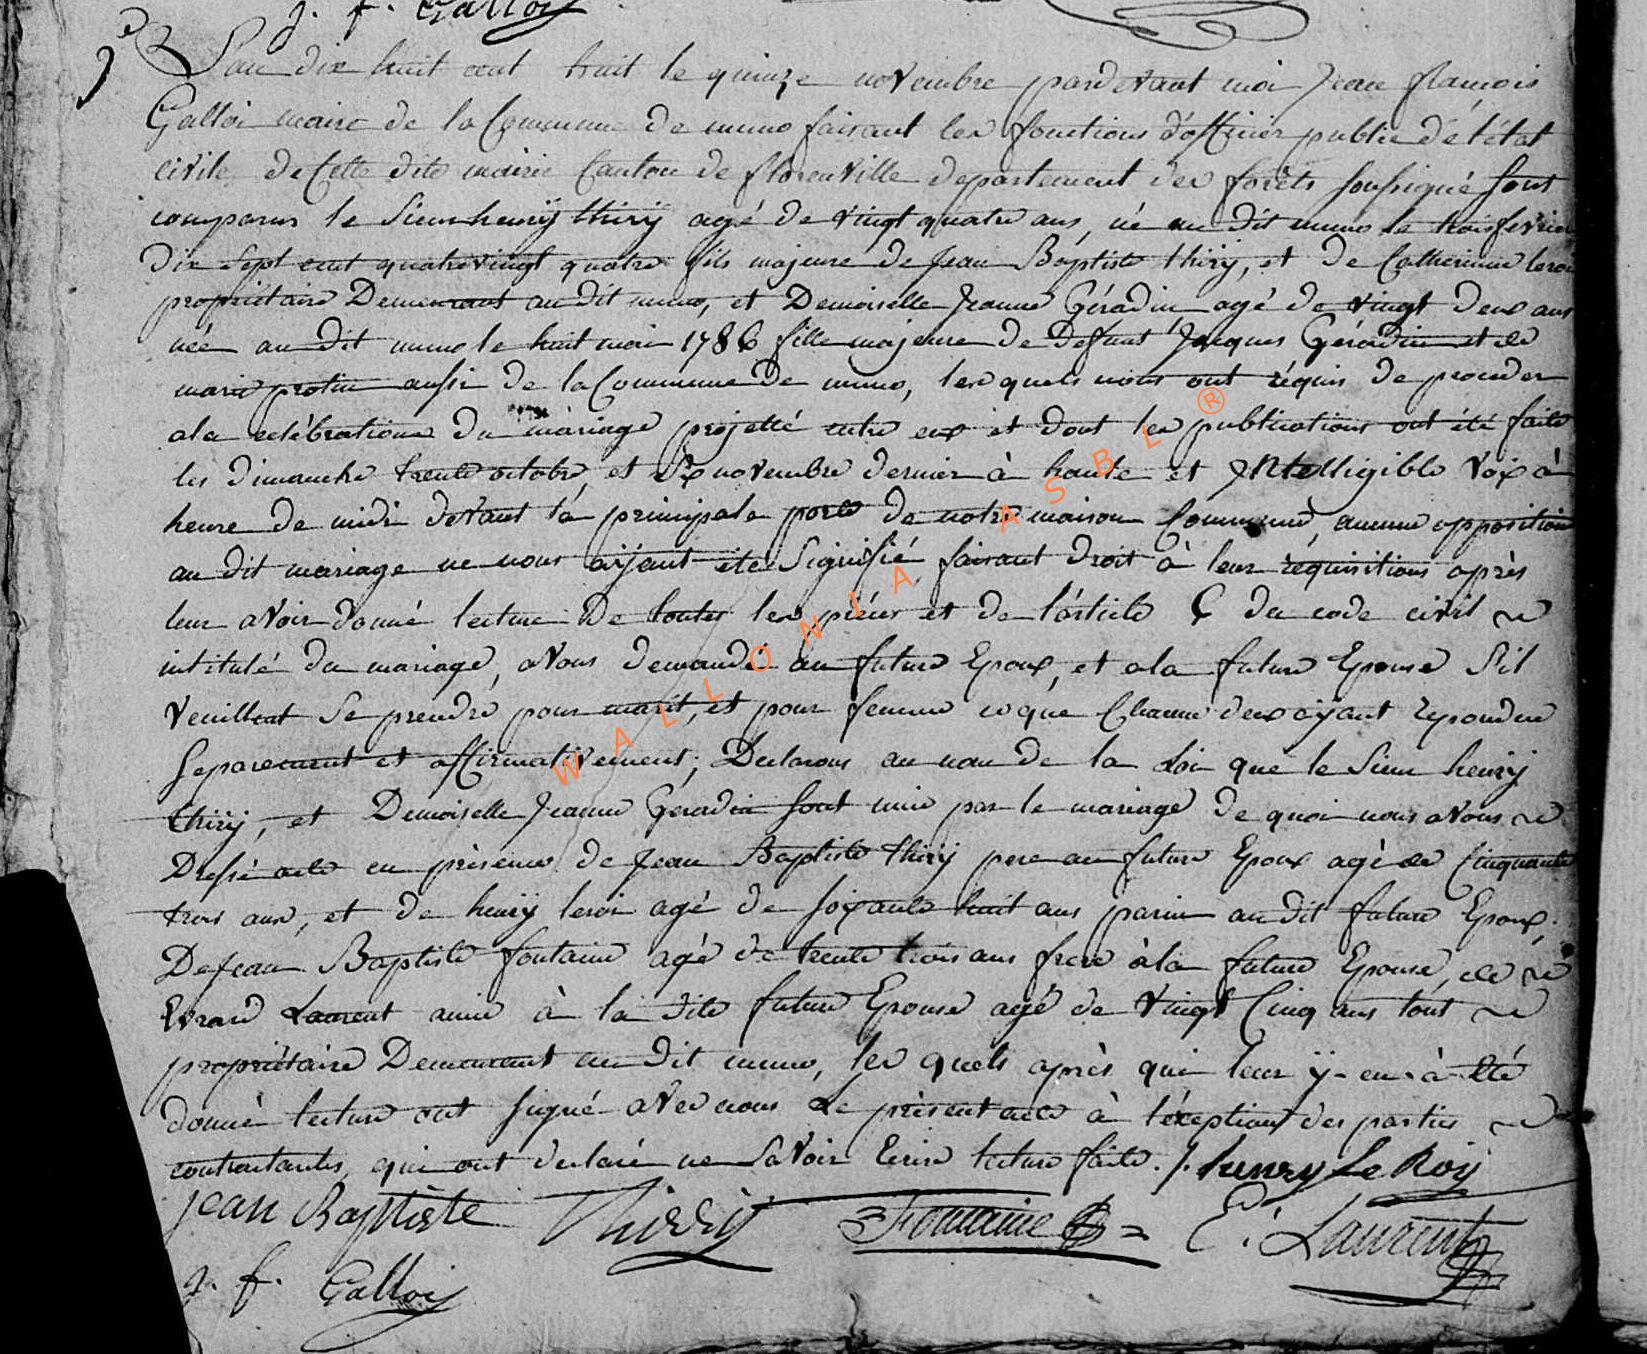 j. f. Galloy
3e
L'an dix huit cent huit le quinze novembre pardevant moi Jean francois
Galloi maire de la Commune de muno faisant les fonctions d'officier public de l'état
civile de Cette dite mairie Canton de florenville departement des forêts soussigné sont
comparus le Sieur henrÿ thirÿ agé de vingt quatre ans, né au dit muno le trois fevrier
dix Sept cent quatrevingt quatre fils majeure de Jean Baptiste thirÿ, et de Catherinne leroi
propriétaire Demeurant au dit muno, et Demoiselle Jeanne Géradin agé de vingt deux ans
née au dit muno le huit mai 1786 fille majeure de Defunt Jacques Géradin et de
marie protin aussi de la Commune de muno, lesquels nous ont réquis de proceder
a la celébrations du màriage projetté entre eux et dont les publications ont été faite
les dimanche trente octobre, et Six novembre dernier à haute et INtelligible voix à
heure de midi devant la principale porte de notre maison Commune, aucune opposition
au dit mariage ne nous aÿant été Signifié faisant droit à leur réquisitions après
leur avoir donné lecture de toutes les piéces et de l'àrticle 6 du code civil
intitulé du mariage, avons demandé au future Epoux, et a la future Epouse S'il
veuillent se prendre pour marit, et pour femme ce que Chacune deux aÿant repondue
separement et affirmativement; Declarons au nom de la Loi que le Sieur henrÿ
thirÿ, et Demoiselle Jeanne Géradin sont unie par le mariage de quoi nous avons
Dressé acte en présence de Jean Baptiste thirÿ pere au future Epoux agé de Cinquante
trois ans, et de henrÿ leroi agé de soixante huit ans parin au dit future Epoux,
De jean Baptiste fontaine agé de trente trois ans frere à la future Epouse, de
Evrard Laurent amie à la dite future Epouse agé de vingt Cinq ans tout
propriétaire Demeurant au dit muno, les quels après qui leur ÿ en à été
donné lecture ont signé avec nous Le présent acte à l'éxception des parties
contractantes, qui ont declaré ne Savoir Ecrire lecture faite. /. henry Le Roÿ
jean Baptiste Thirry Fontaine E. Laurent
j. f. Galloy
WALLONIA ASBL ®